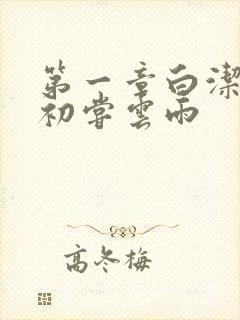 第一章白潔
初嘗雲雨
高冬梅